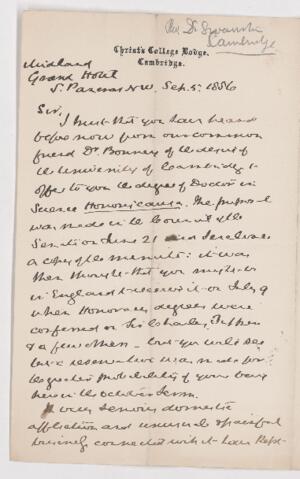 Rev Dr Swainson
Cambridge
Christ's College Lodge,
Cambridge.
Midland
Grand Hotel
S. Pancras N.W. Sep. 5. 1886
Sir,
I trust that you have heard
before now from our common
friend Dr Bonney of the desire of
the University of Cambridge to
offer to you the degree of Doctor in
Science Honoris causa. The proposal
was made in the Council of the
Senate on June 21 and I enclose
a copy of the minute: it was
then thought that you might be
in England to receive it on July 9
when Honorary degrees were
conferred on Sir Charles Tupper
& a few others — but you will see
that a reservation was made for
the greater probability of your being
here in the October term.
A very serious domestic
affliction and unusual official
business connected with it have kept